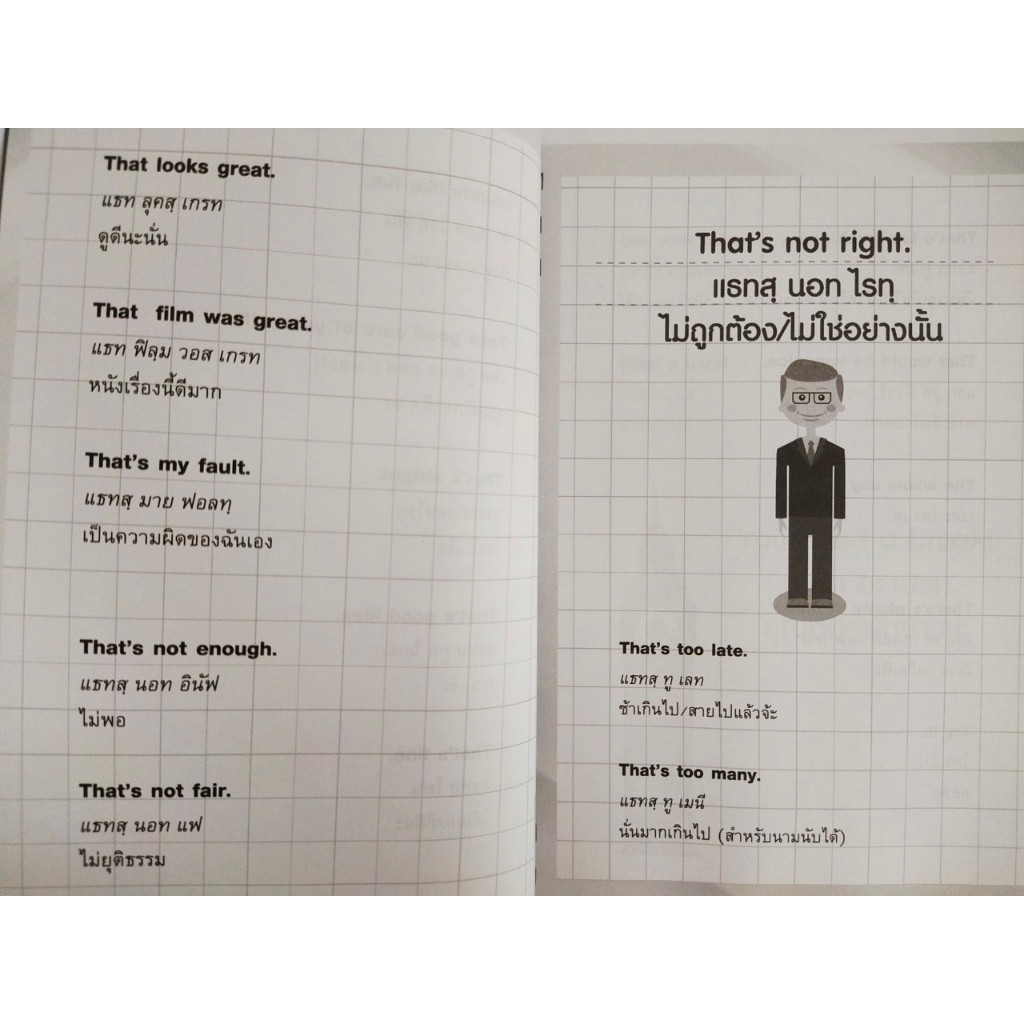 That looks great.
แธท ลุคสฺ เกรท
ดูดีนะนั่น
That film was great.
แธท ฟิลฺม วอส เกรท
หนังเรื่องนี้ดีมาก
That's my fault.
แธทสฺ มาย ฟอลทฺ
เป็นความผิดของฉันเอง
That's not enough.
แธทสฺ นอท อินัฟ
ไม่พอ
That's not fair.
แธทสฺ นอท แฟ
ไม่ยุติธรรม
That's not right.
แธทสฺ นอท ไรทฺ
ไม่ถูกต้อง/ไม่ใช่อย่างนั้น
That's too late.
แธทสฺ ทู เลท
ช้าเกินไป/สายไปแล้วจ้ะ
That's too many.
แธทสฺ ทู เมนี
นั่นมากเกินไป (สำหรับนามนับได้)